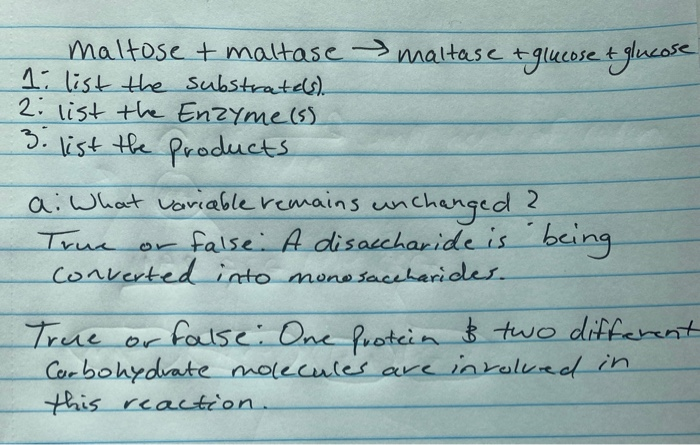 maltose + maltase → maltase + glucose + glucose
1: list the substrate(s).
2: list the Enzyme(s)
3: list the products
a: What variable remains unchanged?
True or false: A disaccharide is being
converted into monosaccharides.
True or false: One protein & two different
Carbohydrate molecules are involved in
this reaction.